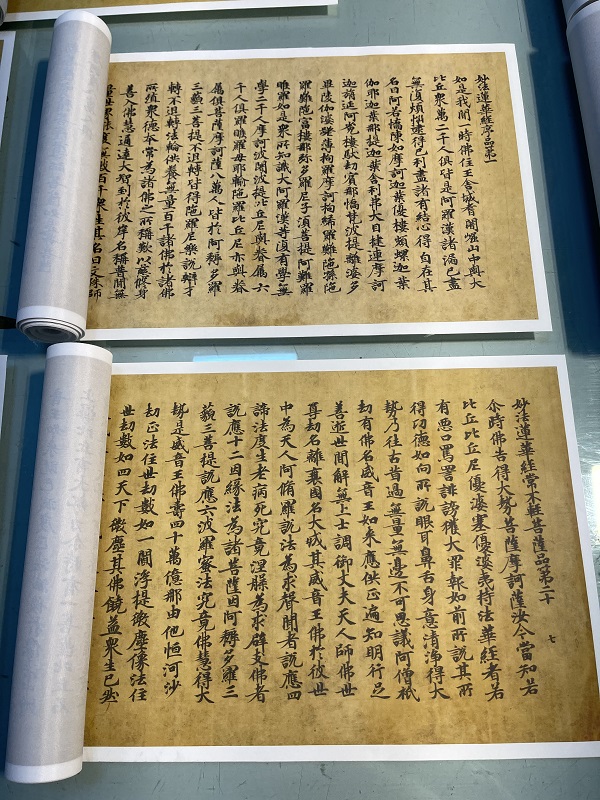 妙法蓮華經序品第一
如是我聞一時佛住王舍城耆闍崛山中與大
比丘衆萬二千人俱皆是阿羅漢諸漏已盡
無復煩惱逮得已利盡諸有結心得自在其
名曰阿若憍陳如摩訶迦葉優樓頻螺迦葉
伽耶迦葉那提迦葉舍利弗大目揵連摩訶
迦旃延阿㝹樓馱劫賓那憍梵波提離婆多
畢陵伽婆蹉薄拘羅摩訶拘絺羅難陁孫陁
羅難陁富樓那弥多羅尼子湏菩提阿難羅
睺羅如是衆所知識大阿羅漢等復有學無
學二千人摩訶波闍波提比丘尼與眷属六
千人俱羅睺羅母耶輸陁羅比丘尼亦與眷
属俱菩薩摩訶薩八萬人皆於阿耨多羅
三藐三菩提不退轉皆得陁羅尼樂說辯才
轉不退轉法輪供養無量百千諸佛於諸佛
所殖衆德本常為諸佛之所稱歎以慈修身
善入佛慧通達大智到於彼岸名稱普聞無
量世界能度無數百千衆生其名曰文殊師
妙法蓮華經常不輕菩薩品第二十
七
尒時佛告得大勢菩薩摩訶薩汝今當知若
比丘比丘尼優婆塞優婆夷持法華經者若
有惡口罵詈誹謗獲大罪報如前所說其所
得功德如向所說眼耳鼻舌身意清淨得大
勢乃往古昔過無量無邊不可思議阿僧祇
劫有佛名威音王如來應供正遍知明行足
善逝世間解無上士調御丈夫天人師佛世
尊劫名離衰國名大成其威音王佛於彼世
中為天人阿脩羅說法為求聲聞者說應四
諦法度生老病死究竟涅槃為求辟支佛者
說應十二因緣法為諸菩薩因阿耨多羅三
藐三菩提說應六波羅蜜法究竟佛慧得大
勢是威音王佛壽四十萬億那由他恒河沙
劫正法住世劫數如一閻浮提微塵像法住
世劫數如四天下微塵其佛饒益衆生已然